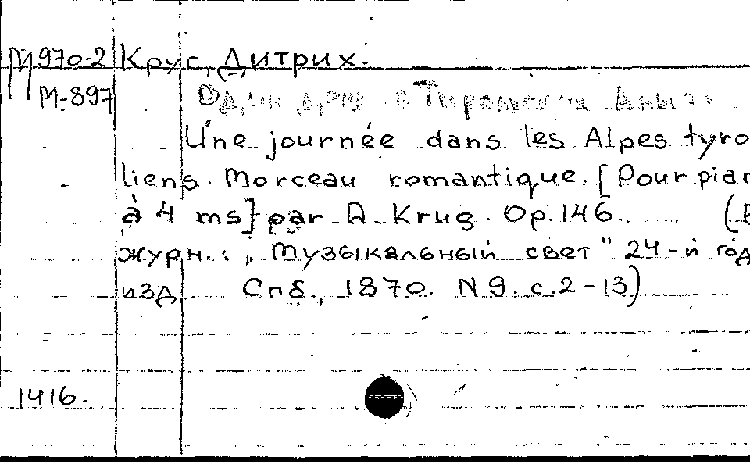 М970-2 Крус, Дитрих.
М-897 Один день в Тирольских Альпах
Une journée dans les Alpes tyro
liens. Morceau romantique. [Pour pian
à 4 ms] par D. Krug. Op. 146. (В
журн.: „Музыкальный свет" 24-й год
изд. Спб., 1870. N 9. с. 2-13)
1416.